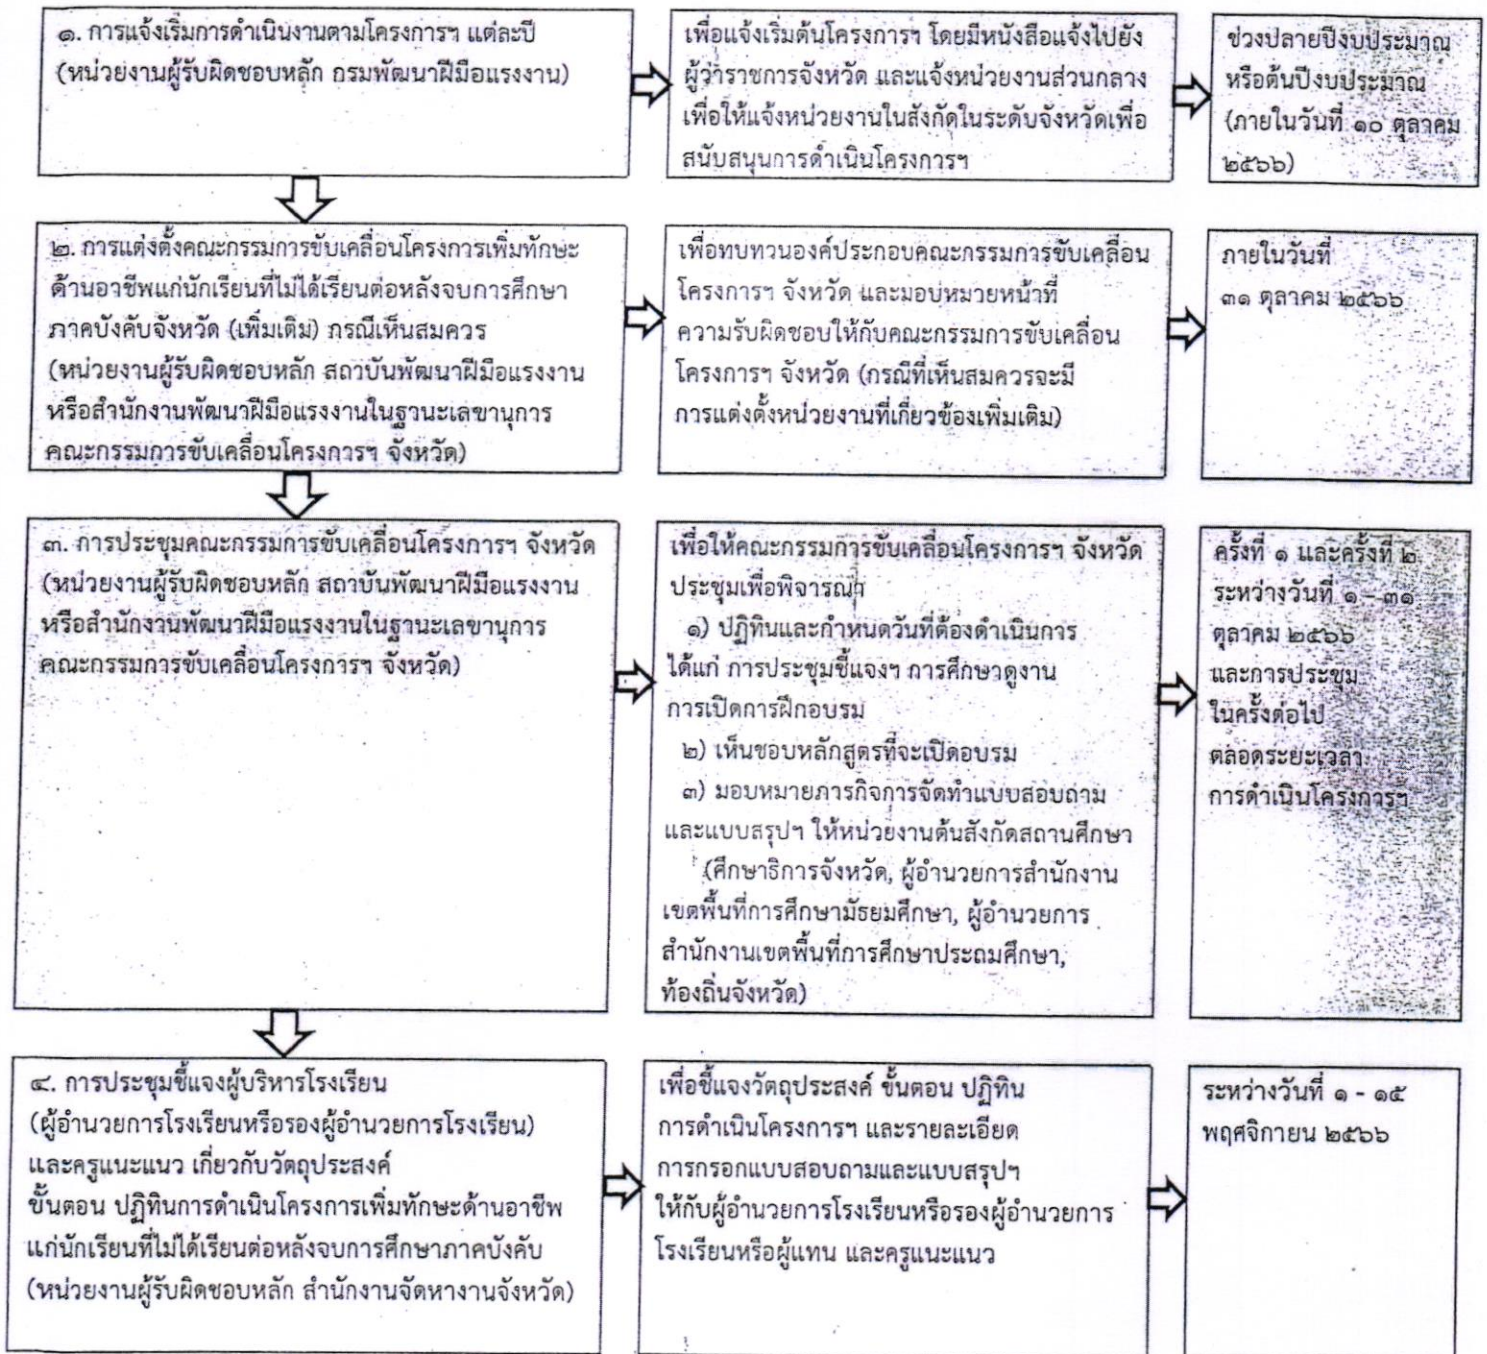 ๑. การแจ้งเริ่มการดำเนินงานตามโครงการฯ แต่ละปี
(หน่วยงานผู้รับผิดชอบหลัก กรมพัฒนาฝีมือแรงงาน)
เพื่อแจ้งเริ่มต้นโครงการฯ โดยมีหนังสือแจ้งไปยัง
ผู้ว่าราชการจังหวัด และแจ้งหน่วยงานส่วนกลาง
เพื่อให้แจ้งหน่วยงานในสังกัดในระดับจังหวัดเพื่อ
สนับสนุนการดำเนินโครงการฯ
ช่วงปลายปีงบประมาณ
หรือต้นปีงบประมาณ
(ภายในวันที่ ๑๐ ตุลาคม
๒๕๖๖)
๒. การแต่งตั้งคณะกรรมการขับเคลื่อนโครงการเพิ่มทักษะ
ด้านอาชีพแก่นักเรียนที่ไม่ได้เรียนต่อหลังจบการศึกษา
ภาคบังคับจังหวัด (เพิ่มเติม) กรณีเห็นสมควร
(หน่วยงานผู้รับผิดชอบหลัก สถาบันพัฒนาฝีมือแรงงาน
หรือสำนักงานพัฒนาฝีมือแรงงานในฐานะเลขานุการ
คณะกรรมการขับเคลื่อนโครงการฯ จังหวัด)
เพื่อทบทวนองค์ประกอบคณะกรรมการขับเคลื่อน
โครงการฯ จังหวัด และมอบหมายหน้าที่
ความรับผิดชอบให้กับคณะกรรมการขับเคลื่อน
โครงการฯ จังหวัด (กรณีที่เห็นสมควรจะมี
การแต่งตั้งหน่วยงานที่เกี่ยวข้องเพิ่มเติม)
ภายในวันที่
๓๑ ตุลาคม ๒๕๖๖
๓. การประชุมคณะกรรมการขับเคลื่อนโครงการฯ จังหวัด
(หน่วยงานผู้รับผิดชอบหลัก สถาบันพัฒนาฝีมือแรงงาน
หรือสำนักงานพัฒนาฝีมือแรงงานในฐานะเลขานุการ
คณะกรรมการขับเคลื่อนโครงการฯ จังหวัด)
เพื่อให้คณะกรรมการขับเคลื่อนโครงการฯ จังหวัด
ประชุมเพื่อพิจารณา
๑) ปฏิทินและกำหนดวันที่ต้องดำเนินการ
ได้แก่ การประชุมชี้แจงฯ การศึกษาดูงาน
การเปิดการฝึกอบรม
๒) เห็นชอบหลักสูตรที่จะเปิดอบรม
๓) มอบหมายภารกิจการจัดทำแบบสอบถาม
และแบบสรุปฯ ให้หน่วยงานต้นสังกัดสถานศึกษา
(ศึกษาธิการจังหวัด, ผู้อำนวยการสำนักงาน
เขตพื้นที่การศึกษามัธยมศึกษา, ผู้อำนวยการ
สำนักงานเขตพื้นที่การศึกษาประถมศึกษา,
ท้องถิ่นจังหวัด)
ครั้งที่ ๑ และครั้งที่ ๒
ระหว่างวันที่ ๑ - ๓๑
ตุลาคม ๒๕๖๖
และการประชุม
ในครั้งต่อไป
ตลอดระยะเวลา
การดำเนินโครงการฯ
๔. การประชุมชี้แจงผู้บริหารโรงเรียน
(ผู้อำนวยการโรงเรียนหรือรองผู้อำนวยการโรงเรียน)
และครูแนะแนว เกี่ยวกับวัตถุประสงค์
ขั้นตอน ปฏิทินการดำเนินโครงการเพิ่มทักษะด้านอาชีพ
แก่นักเรียนที่ไม่ได้เรียนต่อหลังจบการศึกษาภาคบังคับ
(หน่วยงานผู้รับผิดชอบหลัก สำนักงานจัดหางานจังหวัด)
เพื่อชี้แจงวัตถุประสงค์ ขั้นตอน ปฏิทิน
การดำเนินโครงการฯ และรายละเอียด
การกรอกแบบสอบถามและแบบสรุปฯ
ให้กับผู้อำนวยการโรงเรียนหรือรองผู้อำนวยการ
โรงเรียนหรือผู้แทน และครูแนะแนว
ระหว่างวันที่ ๑ - ๑๕
พฤศจิกายน ๒๕๖๖